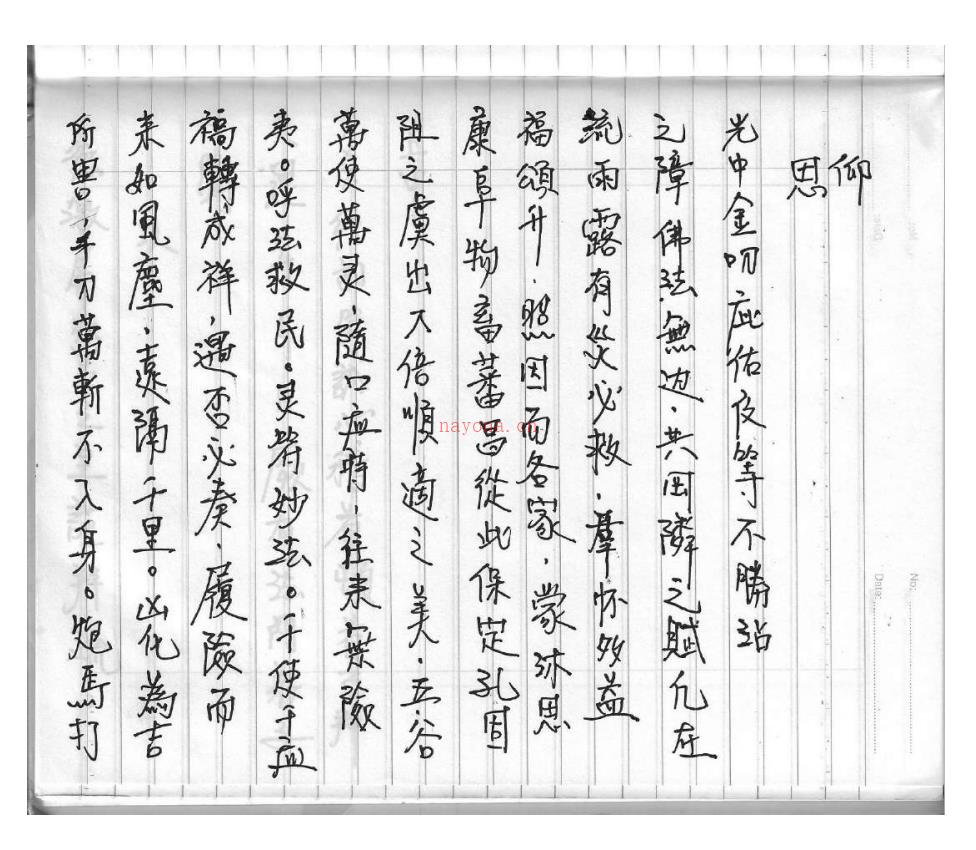 仰
恩
光中金叨庇佑伎等不勝站
之障佛法無边、共困隣之賦凢在
統雨露有災必救、羣怀妙益
福頌升、照因而各家、蒙沐恩
康阜物畜蕃昌從此保定孔固
阻之虞出入倍順適之美、五谷
萬使萬灵、隨口血時、往来無險
夷。呼法救民。灵符妙法。千使千血
禍轉成祥、遇否必泰、履險而
来如風塵、遠隔千里。凶化為吉
所畏、千刀萬斬不入身。炮馬打
nayona.cn
No:
Date: